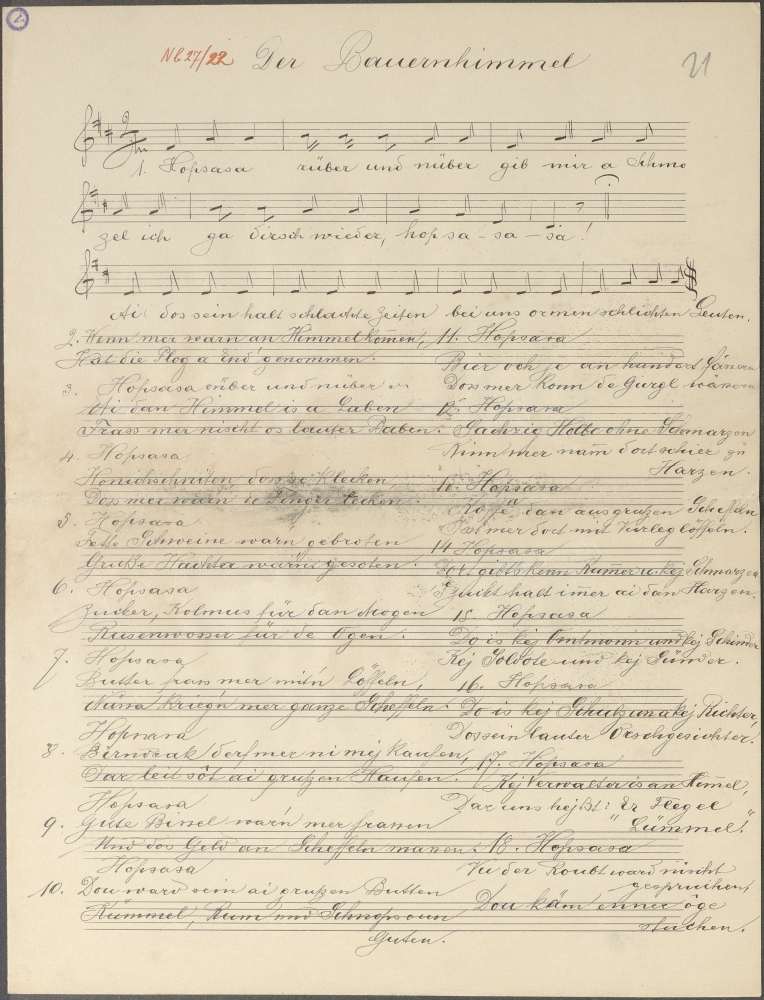 NE 27/22 Der Bauernhimmel 21
1. Hopsasa rüber und nüber gib mir a Schmo
zel ich ga dirsch wieder, hop sa-sa-sa!
Ai dos sein halt schlachte Zeiten bei uns ormen schlichten Leuten.
2. Wenn mer warn an Himmel kommen,
Hat die Plog a End genommen.
3. Hopsasa rüber und nüber
Ai dan Himmel is a Laben
Frass mer nischt os lauter Baben.
4. Hopsasa
Honichschniten, dos se klecken,
Dos mer warn de Finger lecken.
5. Hopsasa
Fette Schweine warn gebroten
Gruße Hachta warn gesoten.
6. Hopsasa
Zucker, Kolmus für dan Mogen
Rusenwosser für de Ogen.
7. Hopsasa
Butter frass mer mit'n Löffeln,
Nüna kriegn mer ganze Scheffeln.
Hopsasa
8. Birnbak derf mer ni mej kaufen,
Dar leit sôt ai grußen Haufen.
Hopsasa
9. Gute Bissel warn mer frassen
Und dos Geld an Scheffeln massen.
Hopsasa
10. Dou ward sein ai grußen Butten
Kümmel, Rum und Schnops oun
Guten.
11. Hopsasa
Bier och je an hundert
Doss mer konn de Gurgl
12. Hopsasa
Sachzig Holbe ohne Schmarzen
Ninn mer nam dort schier zu
Harzen.
13. Hopsasa
dan aus grußen Scheffeln
Sat mer dort mit Vurleglöffeln.
14 Hopsasa
Dort gibts kenn Kummer u. kej Schmarzen
Zuikt halt imer ai dan Harzen.
15. Hopsasa
Do is kej Omtmonn und kej Schinder
Kej Soldote und kej Sünder.
16. Hopsasa
Do is kej Schulz una kej Richter,
Dos sein lauter Orschgesichter.
17. Hopsasa
Kej Verwalter is an Himmel,
Dar uns hejßt: "Er Flegel
Lümmel".
18. Hopsasa
Vu der Roubt ward nischt
gespruchen,
Dou käm enner öge
stuchen.